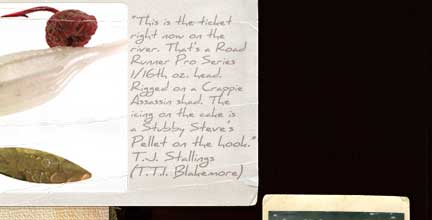 "This is the ticket
right now on the
river. That's a Road
Runner Pro Series
1/16th oz. head.
Rigged on a Crappie
Assassin shad. The
icing on the cake is
a Stubby Steve's
Pellet on the hook."
T.J. Stallings
(T.T.I. Blakemore)